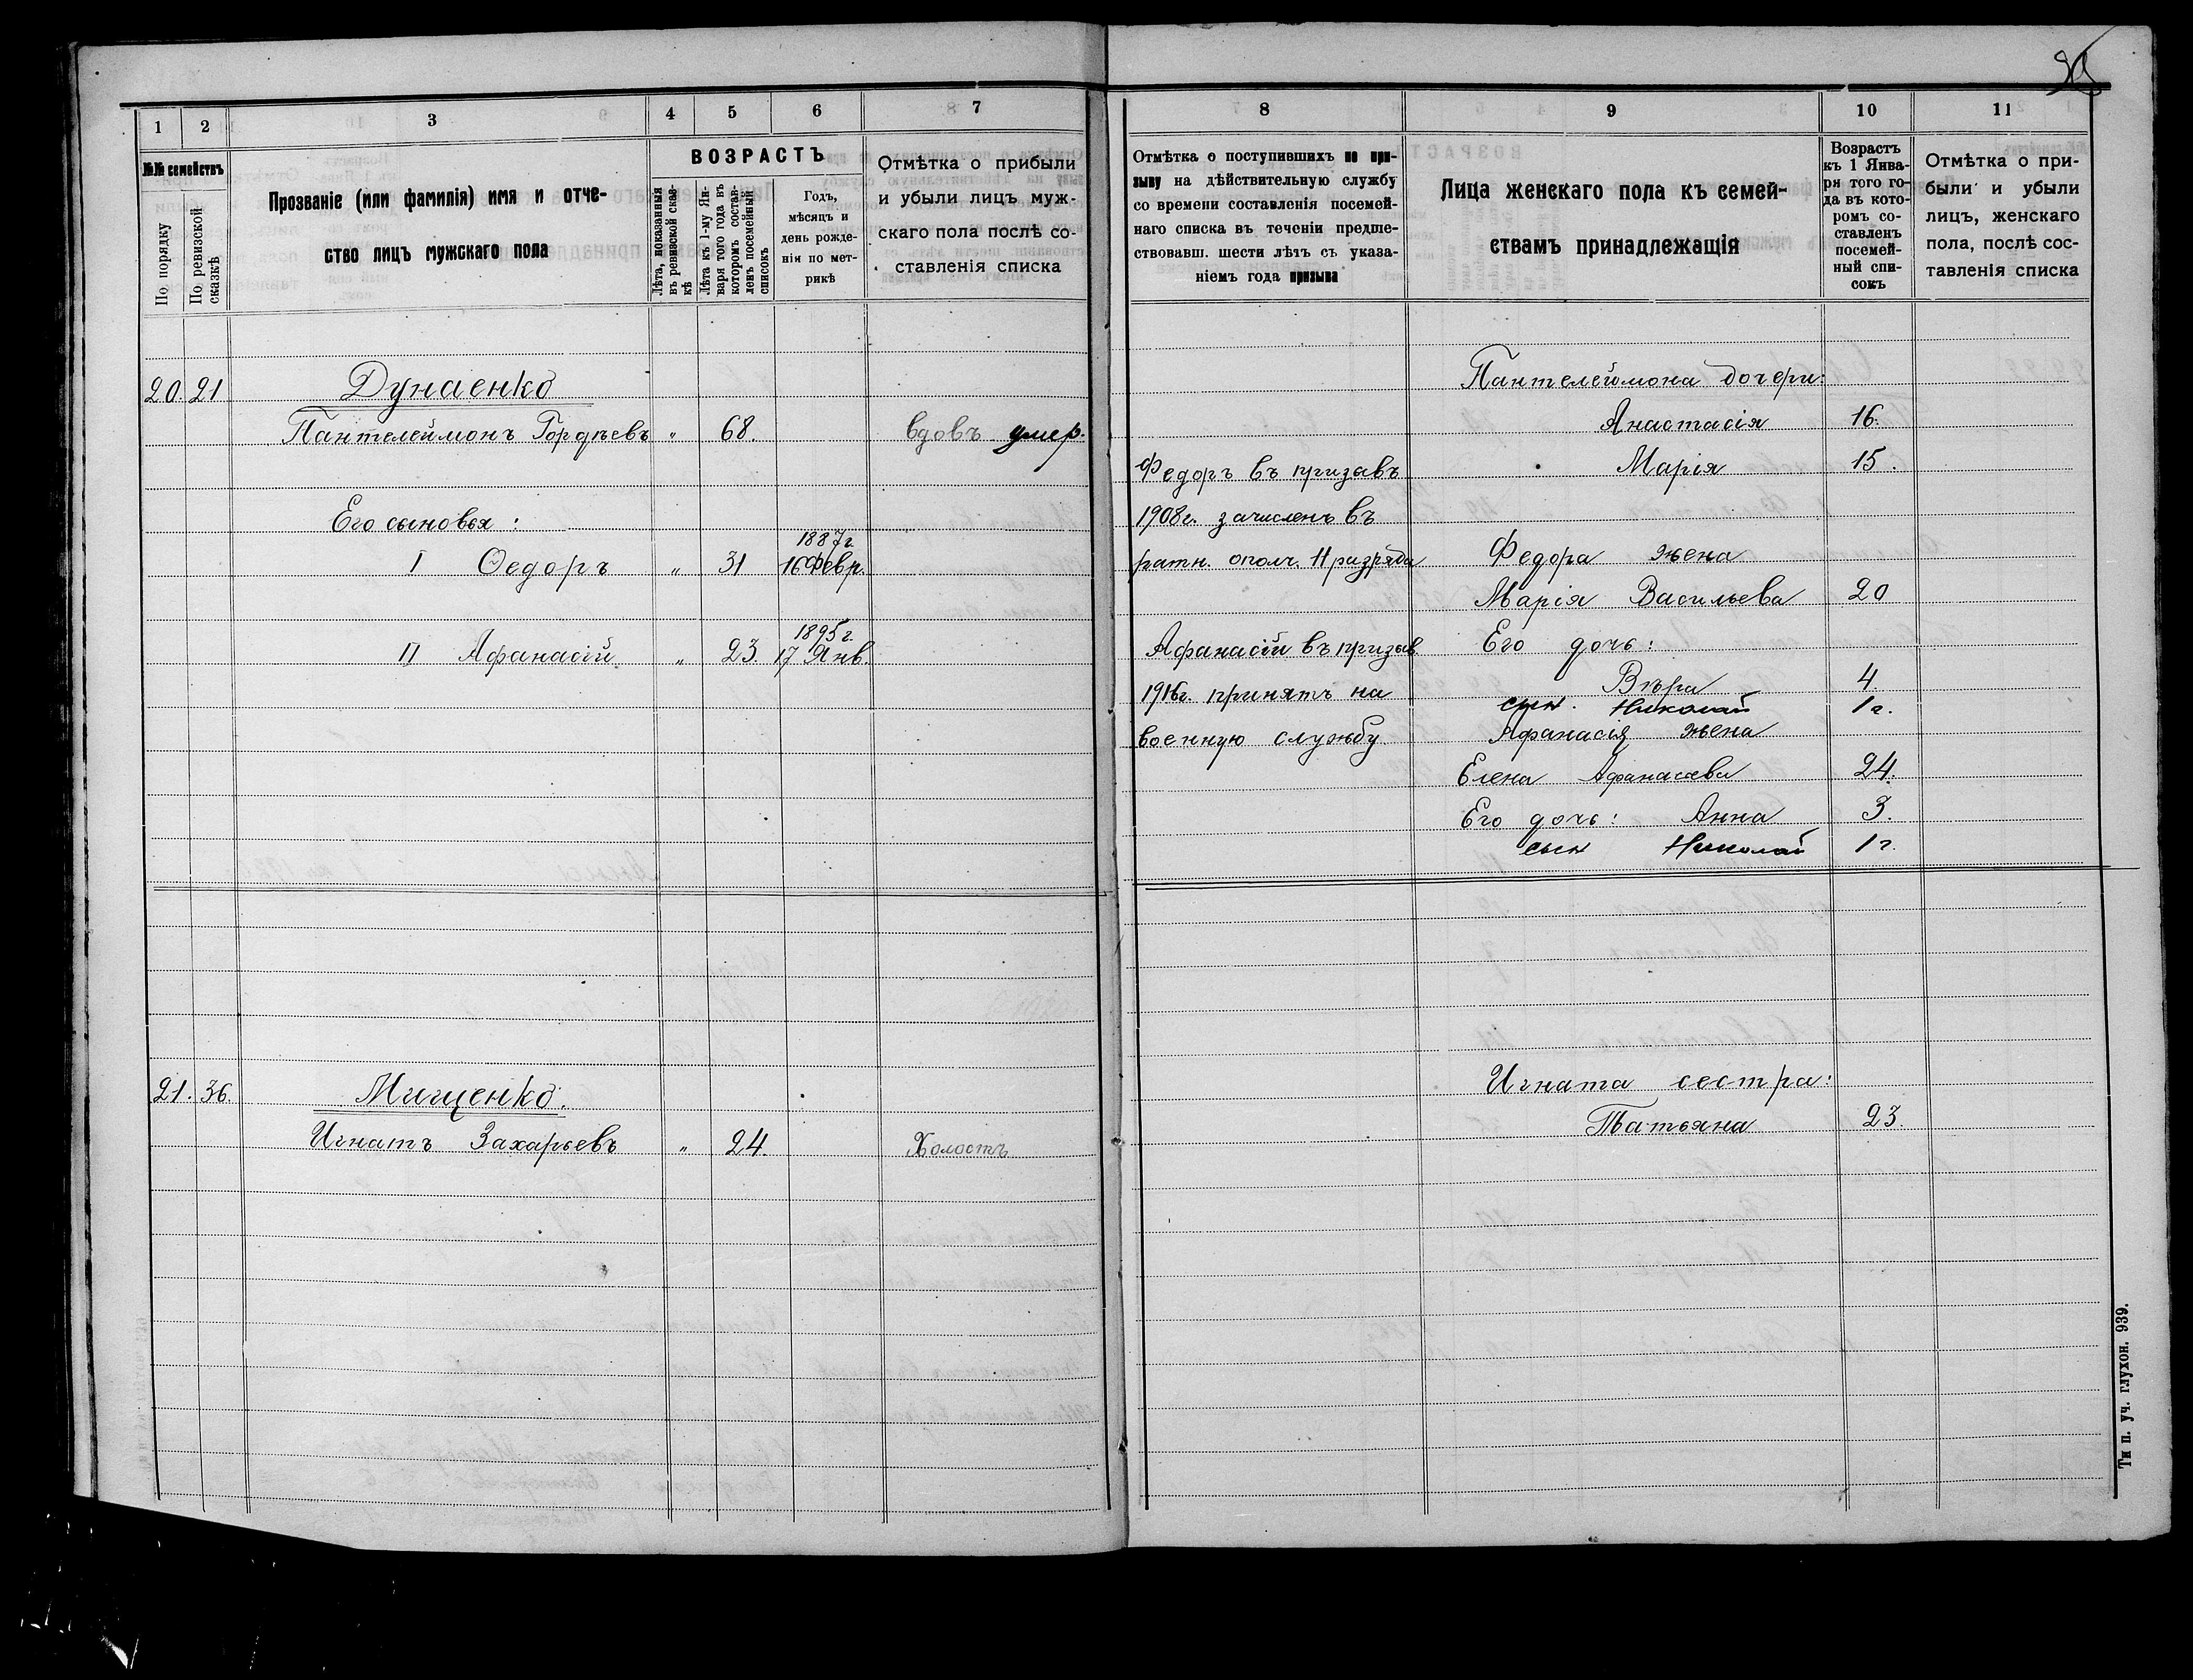 1 2 3 4 5 6 7
№№ семействъ
По порядку
По ревизской сказкѣ
Прозваніе (или фамилія) имя и отче-
ство лицъ мужскаго пола
ВОЗРАСТЪ
Лѣта, показанныя
въ ревизской сказ-
кѣ
Лѣта къ 1-му Ян-
варя того года въ
которомъ состав-
ленъ посемейный
списокъ
Годъ,
мѣсяцъ и
день рожде-
нія по мет-
рикѣ
Отмѣтка о прибыли
и убыли лицъ муж-
скаго пола послѣ со-
ставленія списка
20. 21 Дунаенко
Пантелеймонъ Гордѣевъ „ 68. вдовъ умер.
Его сыновья:
1887г.
I Ѳедоръ „ 31 16 Февр.
1895г.
II Афанасій „ 23. 17 Янв.
21. 36. Мищенко.
Игнатъ Захарьевъ „ 24. Холостъ
8 9 10 11
Отмѣтка о поступившихъ по при-
зыву на дѣйствительную службу
со времени составленія посемей-
наго списка въ теченіи предше-
ствовавш. шести лѣтъ съ указа-
ніемъ года призыва
Лица женскаго пола къ семей-
ствамъ принадлежащія
Возрастъ
къ 1 Янва-
ря того го-
да въ кото-
ромъ со-
ставленъ
посемей-
ный спи-
сокъ
Отмѣтка о при-
были и убыли
лицъ, женскаго
пола, послѣ сос-
тавленія списка
Пантелеймона дочери:
Анастасія 16.
Федоръ въ призывъ Марія 15.
1908г. зачисленъ въ
ратн. ополч. II разряда Федора жена
Марія Васильева 20
Афанасій въ призыв Его дочь:
1916г. принятъ на Вѣра 4
сын. Николай 1 г.
военную службу Афанасія жена
Елена Афанасьева 24.
Его дочь: Анна 3.
сын Николай 1 г
Игната сестра:
Татьяна 23.
Тип. уч. глухон. 939.